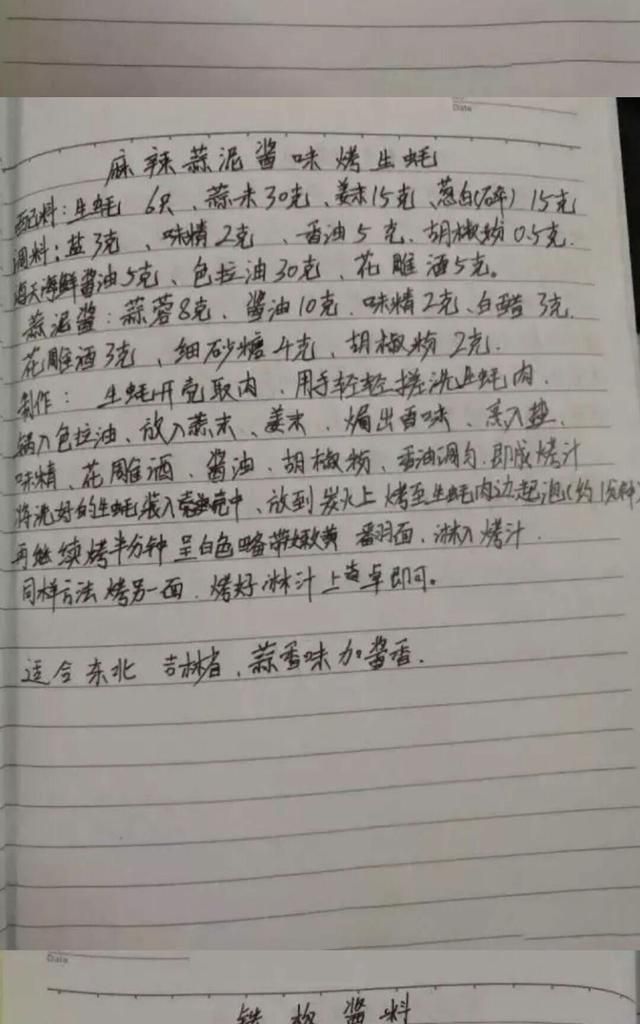 Date
麻辣蒜泥酱味烤生蚝
配料：生蚝 6只、蒜末30克、姜末15克、葱白(碎) 15克
调料：盐3克、味精2克、香油5克、胡椒粉0.5克.
海天海鲜酱油5克、色拉油30克、花雕酒5克。
蒜泥酱：蒜蓉8克、酱油10克.味精2克、白醋3克.
花雕酒3克、细砂糖4克、胡椒粉2克.
制作： 生蚝开壳取肉、用手轻轻搓洗生蚝肉.
锅入色拉油、放入蒜末、姜末、焗出香味、蒸入盐.
味精、花雕酒、酱油、胡椒粉、香油调匀.即成烤汁
将洗好的生蚝装入壳中、放到炭火上烤至生蚝肉边起泡(约1分钟)
再继续烤半分钟 呈白色略带嫩黄 翻面、淋入烤汁.
同样方法烤另一面、烤好淋汁上桌即可。
适合东北 吉林省、蒜香味加酱香.
Date
铁板酱料